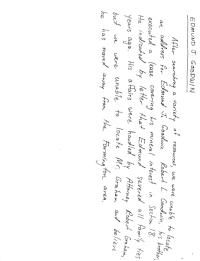 EDMUND J. GOODWIN
After searching a variety of resources, we were unable to locate
an address for Edmund J. Goodwin. Robert L. Goodwin, his brother,
executed a lease covering his mineral interest in Section 18.
He indicated by letter that Edmund severed all family ties
years ago. His affairs were handled by Attorney Robert Graham,
but we were unable to locate Mr. Graham and believe
he has moved away from the Farmington area.